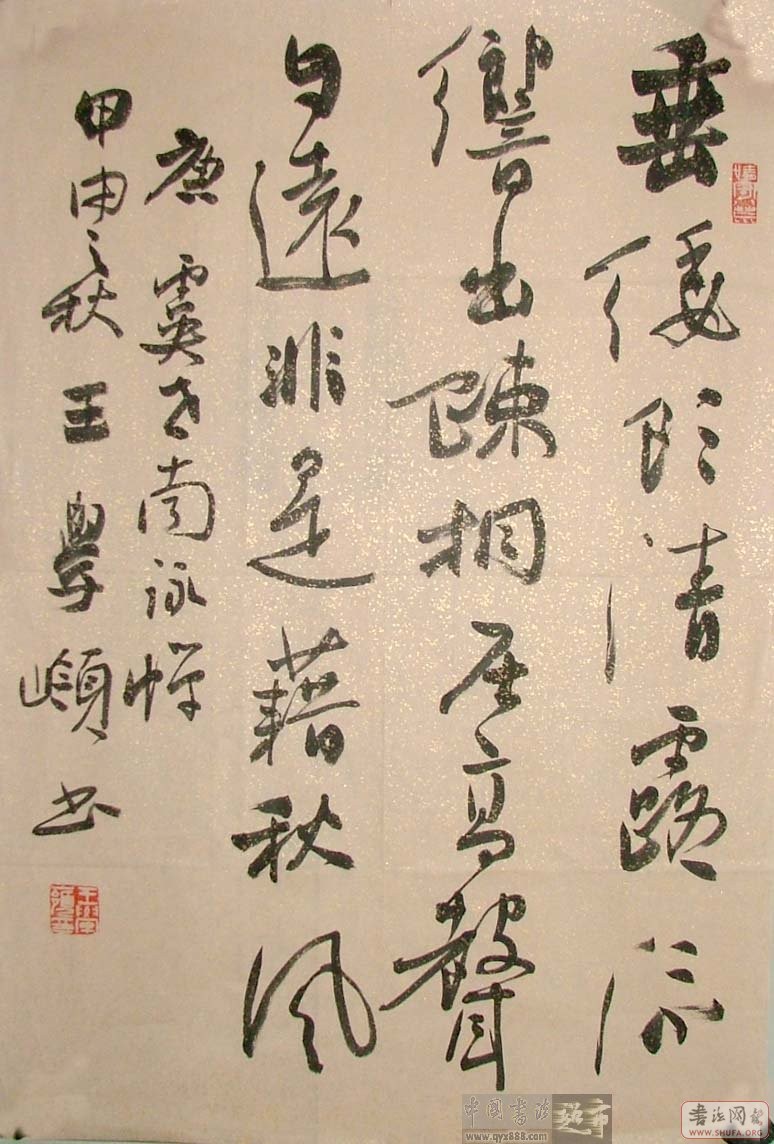 垂緌飲清露流
響出疎桐居高聲
自遠非是藉秋風
唐虞世南詠蟬
甲申之秋王學嶺书
中國書法超市
www.qyx888.com
WWW.SHUFA.ORG